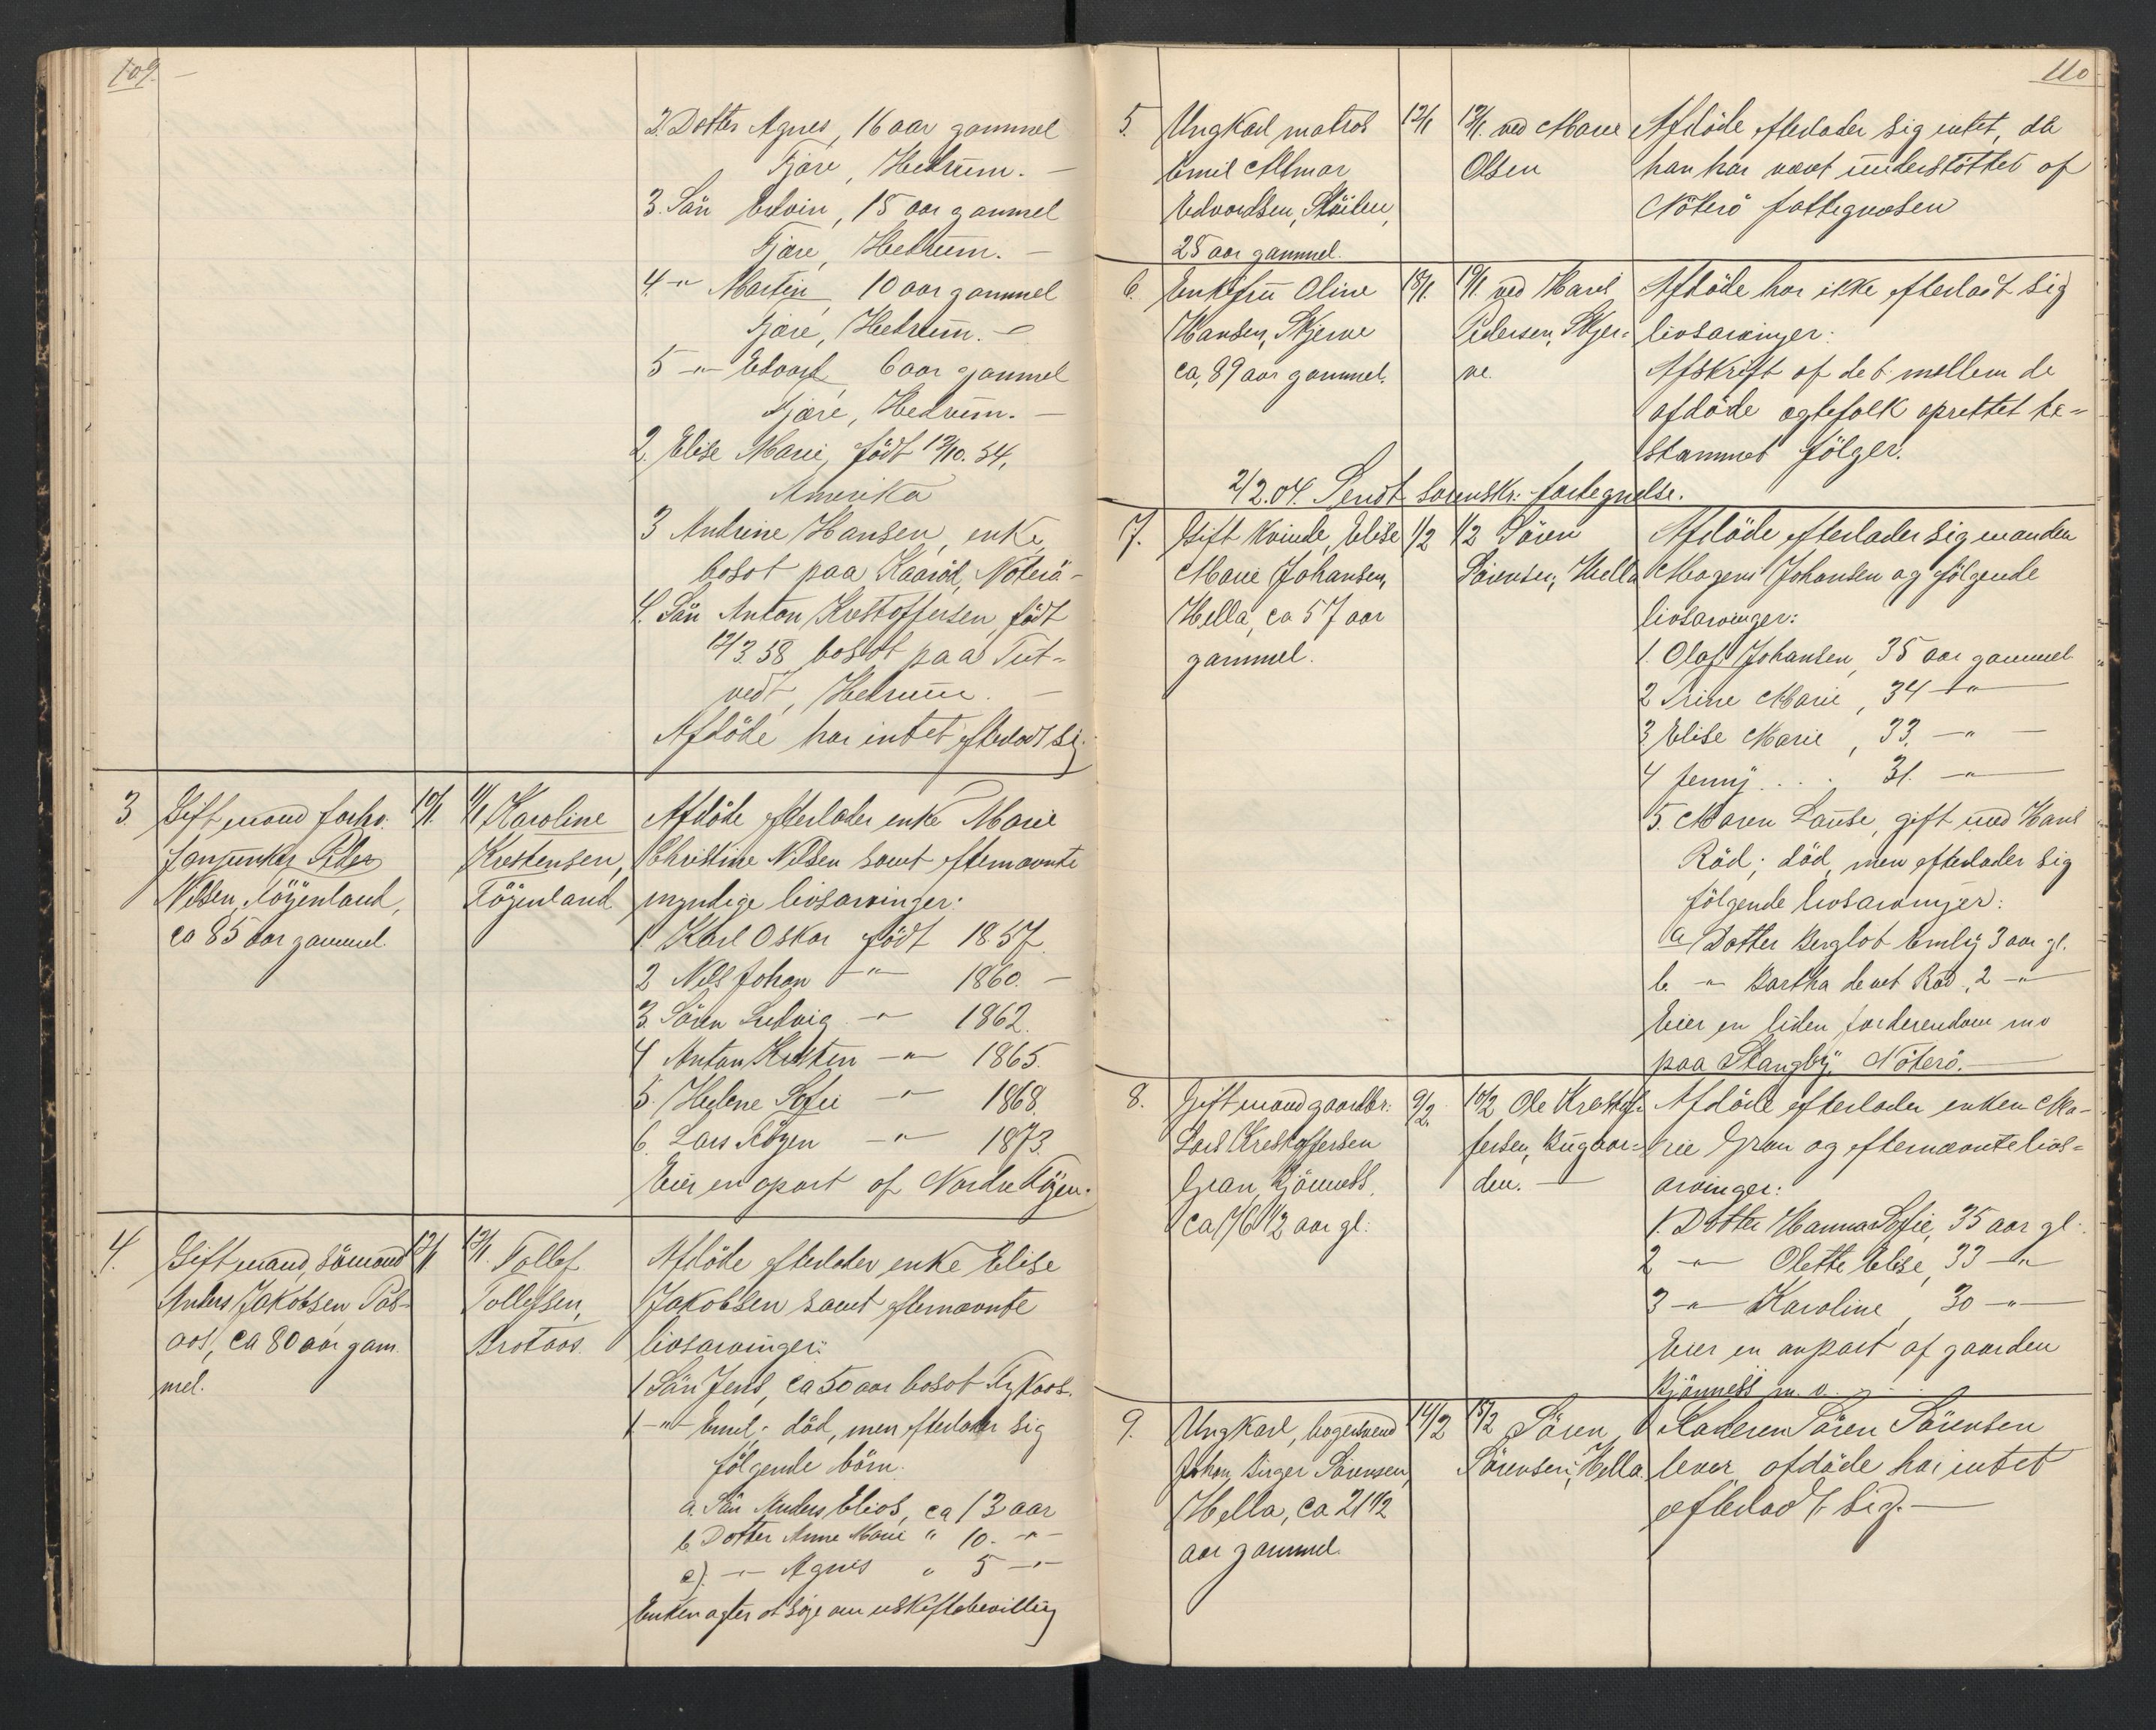 109.
2. Datter Agnes, 16 aar gammel
Tjøre, Hedrum. —
3. Sön Edvin, 15 aar gammel
Tjøre, Hedrum. —
4 -"- Martin, 10 aar gammel
Tjøre, Hedrum. —
5 -"- Edvard 6 aar gammel
Tjøre, Hedrum. —
2. Elise Marie, födt 12/10. 54,
Amerika
3 Andrine Hansen, enke,
bosat paa Kaaröd, Nöterö -
4. Sön Anton Kristoffersen, födt
12/3 58, bosat paa Tut-
vedt, Hedrum. —
Afdöde har intet efterladt sig.
3. Gift mand forhv.
fanjunker Peder
Nilsen, Föyenland,
ca 85 aar gammel.
10/1.
11/1 Karoline
Kristensen,
Föyenland
Afdöde efterlader enke Marie
Christine Nilsen samt efternævnte
myndige livsarvinger:
1 Karl Oskar födt 1857
2 Nils Johan -"- 1860. —
3. Sören Ludvig -"- 1862.
4 Anton Kristen -"- 1865.
5. Helene Sofie -"- 1868.
6. Lars Föyen -"- 1873.
Eier en part af Nordre Föyen.
4. Gift mand, sömand
Anders Jakobsen,
aas, ca 80 aar gam
mel.
12/1
12/1. Tollef
Tollefsen,
Brotaas.
Afdöde efterlader enke Elise
Jakobsen samt efternævnte
livsarvinger:
1 Sön Jens, ca 50 aar bosat
1 -"- Emil; död, men efterlader sig
fölgende börn.
a. Sön Anders Elias, ca 13 aar
b. Datter Anne Marie " 10. -"-
c). -"- Agnes " 5 -"-
Enken agter at söge om uskiftebevilling
110
5. Ungkarl matros
Emil Almar
Edvardsen,
25 aar gammel.
12/1
13/1. ved Marie
Olsen
Afdöde efterlader sig intet, da
han har vært understöttet af
Nöterö fattigvæsen
6. Enkefru Oline
Hansen, Skjerve
ca, 89 aar gammel.
18/1.
19/1. ved Karel
Pedersen, Skjer-
ve.
Afdöde har ikke efterladt sig
livsarvinger:
Afskrift af det mellem de
afdöde ægtefolk oprettet te-
stammet fölger.
2/2.04. Sendt sorenskr: fortegnelse.
7. Gift kvinde, Elise
Marie Johansen,
Hella, ca 57 aar
gammel.
1/2
1/2 Sören
Sörensen, Hella
Afdöde efterlader sig manden
Mogens Johansen og fölgende
livsarvinger:
1. Olaf Johansen, 35 aar gammel
2 Trine Marie, 34 -"-
3. Elise Marie, 33. -"-
4 Jenny . . . 31. -"-
5. Maren Lause, gift med Hans
Röd; död, men efterlader sig
fölgende livsarvinger:
a Datter Berglot Emily 3 aar gl.
b. -"- Bartha Röd, 2 -"-
Eier en liden
paa Stangby, Nöterö. —
8. Gift mand gaardbr.
Lars Kristoffersen
Gran, Bjönness,
ca 76 1/2 aar gl.
9/2.
10/2 Ole Kristof-
fersen, Bugaar-
den. —
Afdöde efterlader enken Ma-
rie Gran og efternævnte livs-
arvinger:
1. Datter Hanna Sofie, 35 aar gl.
2 -"- Olette Elise, 33 -"-
3 -"- Karoline, 30 -"-
Eier en anpart af gaarden
Bjönness m. v.
9. Ungkarl, bagersvend
Johan Birger Sörensen,
Hella, ca 21 1/2
aar gammel.
14/2
15/2 Sören
Sörensen, Hella.
Faderen Sören Sörensen
lever, afdöde har intet
efterladt sig. —